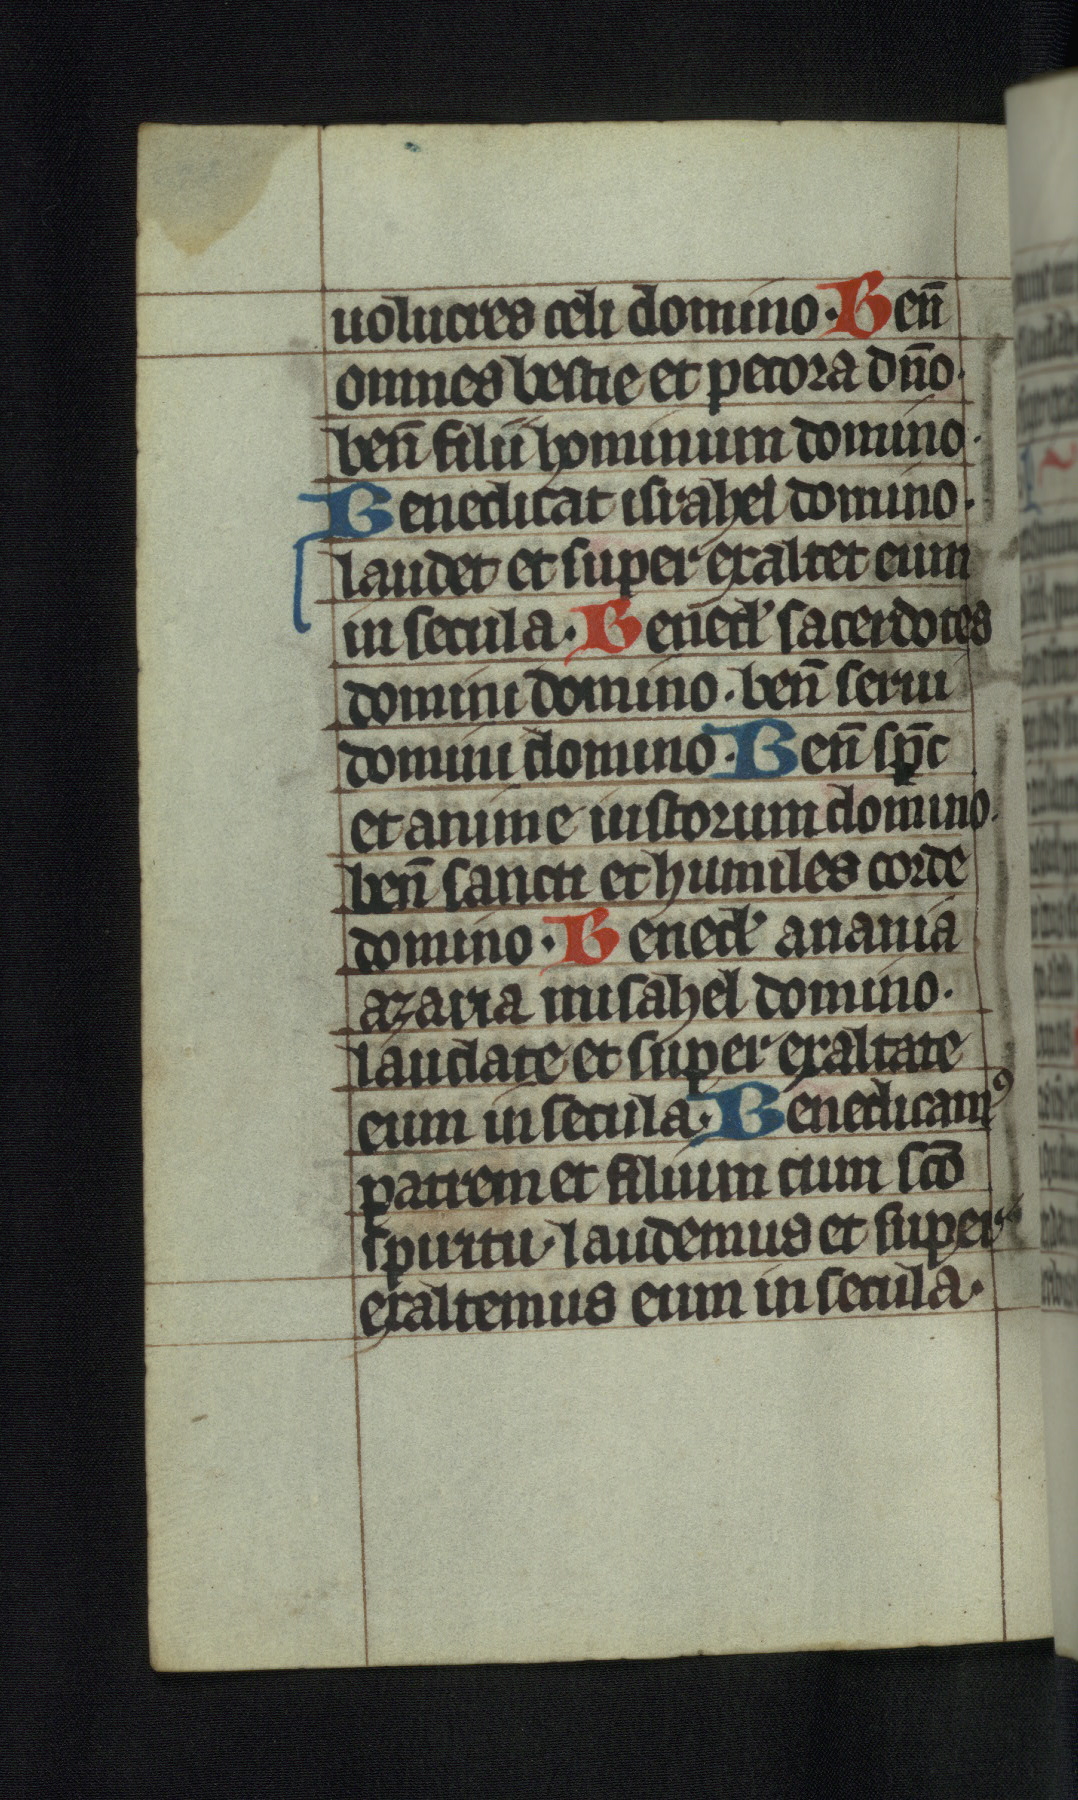 uolucres celi domino · Ben̄
omnes bestie et pecora dn̄o ·
ben̄ filii hominum domino ·
Benedicat israhel domino ·
laudet et super exaltet eum
in secula · Bened̛ sacerdotes
domini domino · ben̄ serui
domini domino · Ben̄ sp̄c
et anime iustorum domino ·
ben̄ sancti et humiles corde
domino · Bened̛ anania
azaria misahel domino ·
laudate et super exaltate
eum in secula · Benedicamꝰ
patrem et filium cum sc̄o
spiritu · laudemus et super
exaltemus eum in secula ·